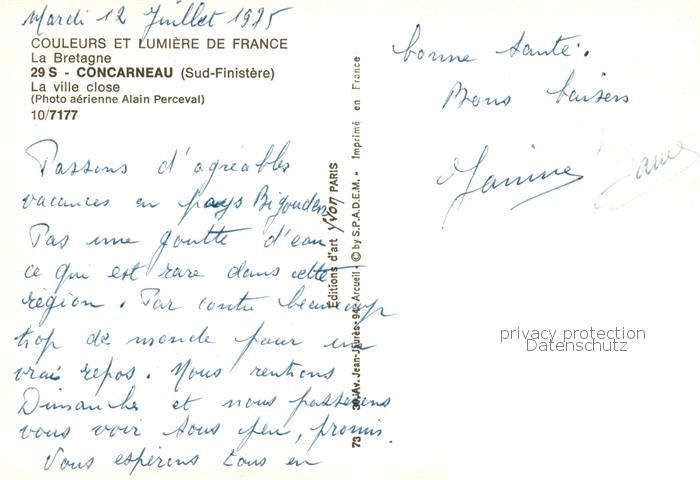 Mardi 12 Juillet 1975
COULEURS ET LUMIÈRE DE FRANCE
La Bretagne
29 S - CONCARNEAU (Sud-Finistère)
La ville close
(Photo aérienne Alain Perceval)
10/7177
Passons d'agréables
vacances en pays Bigouden
Pas une goutte d'eau
ce qui est rare dans cette
région. Par contre beaucoup
trop de monde pour un
vrai repos. Nous rentrons
Dimanche et nous passerons
vous voir sous peu, promis.
Vous espérons tous en
bonne santé.
Bons baisers
Janine
Editions d'art Yvon PARIS
73 30, Av. Jean-Jaurès - 94 - Arcueil - © by S.P.A.D.E.M. - Imprimé en France
privacy protection
Datenschutz